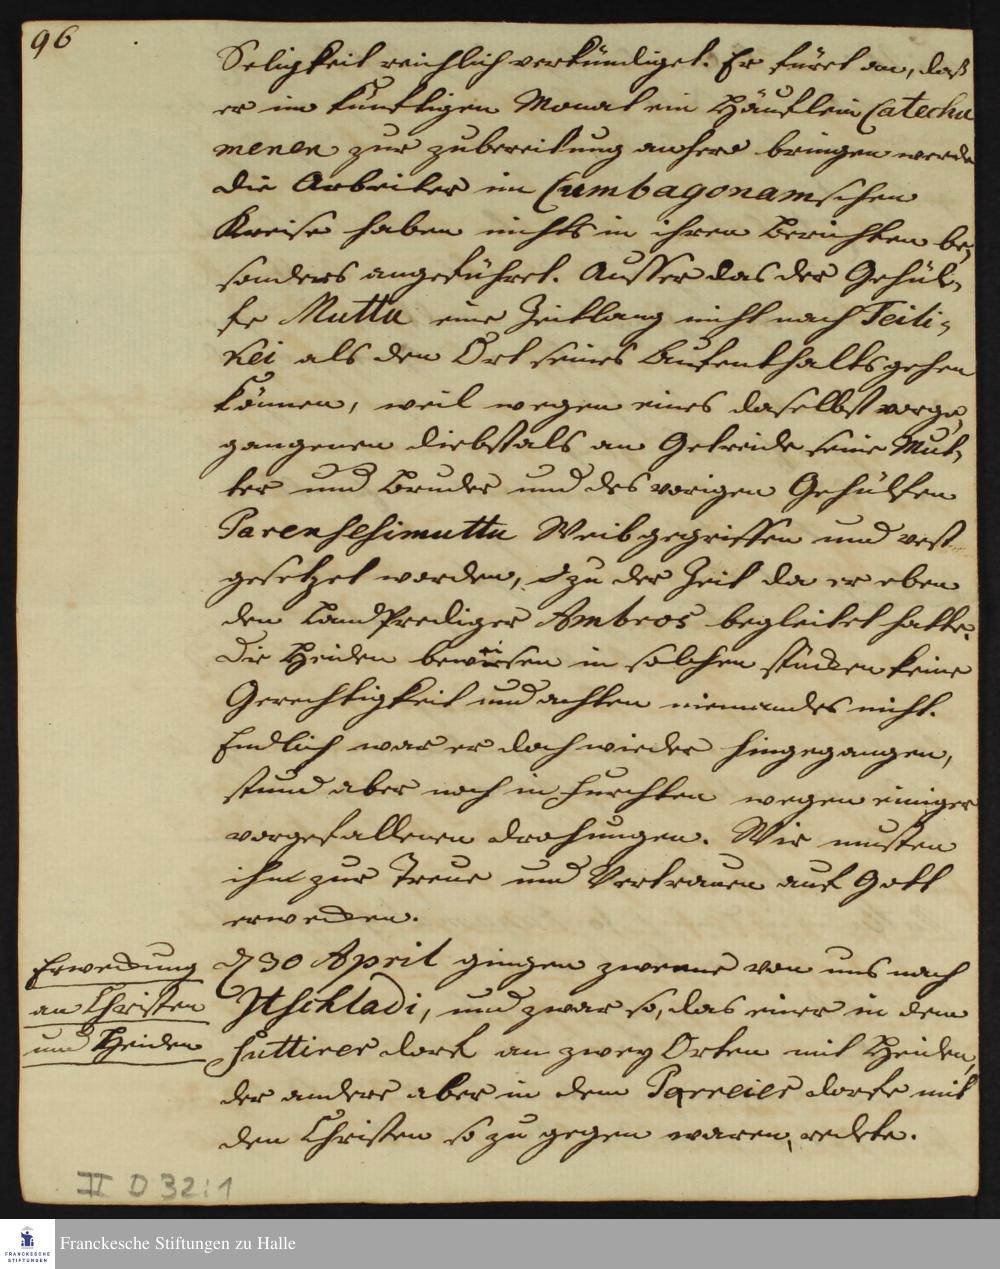 96
Seligkeit reichlich verkündiget. Er füret an, daß
er im künftigen Monat ein Häuflein Catechu
menen zur zubereitung anhero bringen werde
die Arbeiter im Cumbagonamschen
Kreise haben nichts in ihren Berichten be,
sonders angeführet. Ausser das der Gehül,
fe Muttu eine Zeitlang nicht nach Teili,
kei als den Ort seines Aufenthalts gehen
können, weil wegen eines daselbst vorge,
gangenen diebstals an Getreide seine Mut,
ter und Bruder und des vorigen Gehülfen
Parenschimuttu Weib gegriffen und vest
gesetzet worden, zu der Zeit da er eben
den LandPrediger Ambros begleitet hatte.
Die Heiden beweisen in solchen stücken keine
Gerechtigkeit und achten niemandes nicht.
Endlich war er doch wieder hingegangen,
stund aber noch in Furchten wegen einiger
vorgefallenen drohungen. Wir musten
ihn zur Treue und Vertrauen auf Gott
erwecken.
Erweckung
an Christen
und Heiden
d 30 April gingen zweene von uns nach
Itschladi, und zwar so, das einer in dem
Suttirer dorf an zwey Orten mit Heiden,
der andere aber in dem Parreier dorfe mit
den Christen so zu gegen waren, redete.
II D 32:1
FRANCKESCHE
STIFTUNGEN
Franckesche Stiftungen zu Halle